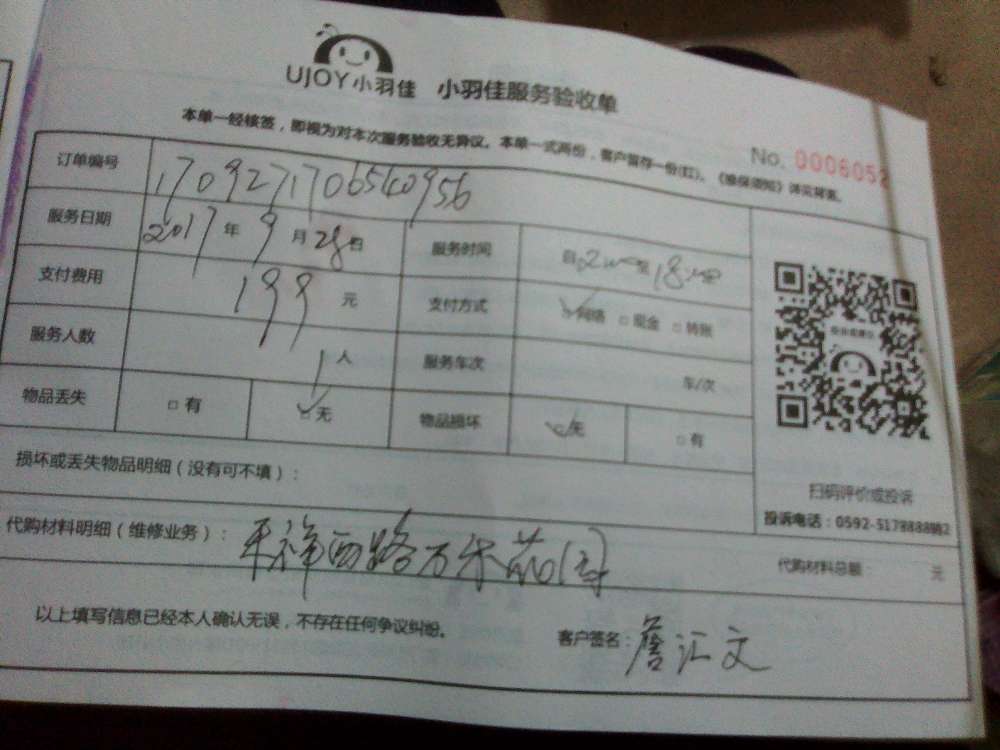 UJOY小羽佳 小羽佳服务验收单
本单一经核签,即视为对本次服务验收无异议。本单一式两份,客户留存一份(红)。《维保须知》详见背面。
No. 0006052
订单编号 1709271706540956
服务日期 2017年9月28日 服务时间 自 至18
支付费用 199元 支付方式 ☑网络 □现金 □转账
服务人数 1人 服务车次 车/次
物品丢失 □有 ☑无 物品损坏 ☑无 □有
扫码评价或投诉
投诉电话:0592-5178888
损坏或丢失物品明细(没有可不填):
代购材料明细(维修业务): 祥西路万禾花园
代购材料总额: 元
以上填写信息已经本人确认无误,不存在任何争议纠纷。
客户签名:詹汇文